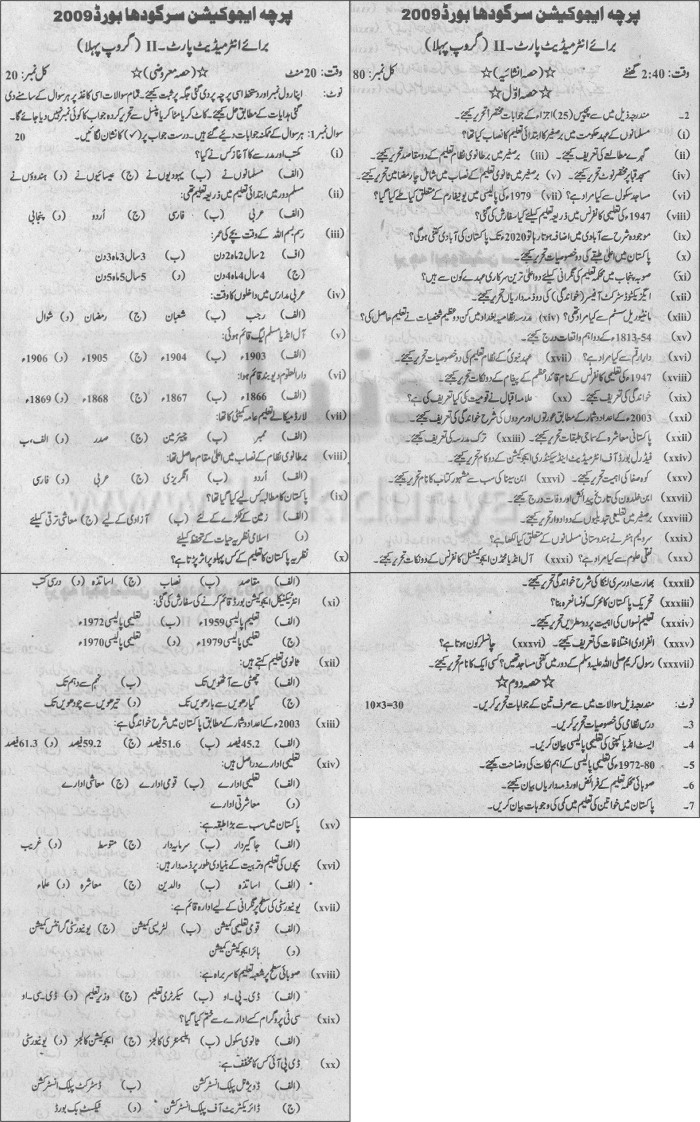 پرچہ ایجوکیشن سرگودھا بورڈ 2009
برائے انٹرمیڈیٹ پارٹ۔II (گروپ پہلا)
وقت: 20 منٹ ☆(حصہ معروضی)☆ کل نمبر: 20
نوٹ: اپنا رول نمبر اور دستخط اسی پرچہ پر دی گئی جگہ پر ثبت کیجئے۔ تمام سوالات اسی کاغذ پر ہر سوال کے سامنے دی
گئی ہدایات کے مطابق حل کیجئے۔ کاٹ کر یا مٹا کر یا پنسل سے تحریر کردہ جواب کا کوئی نمبر نہیں دیا جائے گا۔
سوال نمبر 1: ہر سوال کے ممکنہ جوابات دیے گئے ہیں۔ درست جواب پر (✓) کا نشان لگائیں۔ 20
(i) مکتب اور مدرسے کا آغاز کس نے کیا؟
(الف) مسلمانوں نے (ب) یہودیوں نے (ج) عیسائیوں نے (د) ہندوؤں نے
(ii) مسلم دور میں ابتدائی تعلیم میں ذریعہ تعلیم تھی:
(الف) عربی (ب) فارسی (ج) اُردو (د) پنجابی
(iii) رسم بسم اللہ کے وقت بچے کی عمر:
(الف) 2سال 2ماہ 2دن (ب) 3سال 3ماہ 3دن
(ج) 4سال 4ماہ 4دن (د) 5سال 5ماہ 5دن
(iv) عربی مدارس میں داخلوں کا وقت:
(الف) رجب (ب) شعبان (ج) رمضان (د) شوال
(v) آل انڈیا مسلم لیگ قائم ہوئی:
(الف) 1903ء (ب) 1904ء (ج) 1905ء (د) 1906ء
(vi) دارالعلوم دیوبند قائم ہوا:
(الف) 1866ء (ب) 1867ء (ج) 1868ء (د) 1869ء
(vii) لارڈ میکالے تعلیم عامہ کمیٹی کا تھا:
(الف) ممبر (ب) چیئرمین (ج) صدر (د) الف،ب
(viii) برطانوی نظام کے نصاب میں اعلیٰ مقام حاصل تھا:
(الف) اُردو (ب) انگریزی (ج) عربی (د) فارسی
(ix) پاکستان کا مطالبہ کس لیے کیا گیا تھا؟
(الف) زمین کے ٹکڑے کے لئے (ب) آزادی کے لیے (ج) معاشی ترقی کیلئے
(د) اسلامی نظریہ حیات کے تحفظ کیلئے
(x) نظریہ پاکستان کا تعلیم کے کس پہلو پر اثر پڑتا ہے؟
(الف) مقاصد (ب) نصاب (ج) اساتذہ (د) درسی کتب
(xi) انٹر ٹیکنیکل ایجوکیشن بورڈ قائم کرنے کی سفارش کی گئی:
(الف) تعلیم پالیسی 1959ء (ب) تعلیمی پالیسی 1972ء
(ج) تعلیمی پالیسی 1979ء (د) تعلیمی پالیسی 1970ء
(xii) ثانوی تعلیم کہتے ہیں:
(الف) چھٹی سے آٹھویں تک (ب) نہم سے دہم تک
(ج) گیارھویں سے بارھویں تک (د) تیرھویں سے چودھویں تک
(xiii) 2003ء کے اعداد و شمار کے مطابق پاکستان میں شرح خواندگی ہے:
(الف) 45.2 فیصد (ب) 51.6 فیصد (ج) 59.2 فیصد (د) 61.3 فیصد
(xiv) تعلیمی ادارے دراصل ہیں:
(الف) تعلیمی ادارے (ب) قومی ادارے (ج) معاشی ادارے
(د) معاشرتی ادارے
(xv) پاکستان میں سب سے بڑا طبقہ ہے:
(الف) جاگیردار (ب) سرمایہ دار (ج) متوسط (د) غریب
(xvi) بچوں کی تعلیم و تربیت کے بنیادی طور پر ذمہ دار ہیں:
(الف) اساتذہ (ب) والدین (ج) معاشرہ (د) علماء
(xvii) یونیورسٹی کی سطح پر نگرانی کے لیے ادارہ قائم ہے:
(الف) قومی تعلیمی کمیشن (ب) لٹریسی کمیشن (ج) یونیورسٹی گرانٹس کمیشن
(د) ہائر ایجوکیشن کمیشن
(xviii) صوبائی سطح پر شعبہ تعلیم کا سربراہ ہے:
(الف) ڈی۔پی۔او (ب) سیکرٹری تعلیم (ج) وزیر تعلیم (د) ڈی۔سی۔او
(xix) سی ٹی پروگرام کسے ادارے سے ختم کیا گیا؟
(الف) ثانوی سکول (ب) ایلیمنٹری کالجز (ج) ایجوکیشن کالجز (د) یونیورسٹی
(xx) ڈی پی آئی کس کا مخفف ہے:
(الف) ڈویژنل پبلک انسٹرکشن (ب) ڈسٹرکٹ پبلک انسٹرکشن
(ج) ڈائریکٹریٹ آف پبلک انسٹرکشن (د) ٹیکسٹ بک بورڈ
پرچہ ایجوکیشن سرگودھا بورڈ 2009
برائے انٹرمیڈیٹ پارٹ۔II (گروپ پہلا)
وقت: 2:40 گھنٹے ☆(حصہ انشائیہ)☆ کل نمبر: 80
☆حصہ اوّل☆
2۔ مندرجہ ذیل میں سے پچیس (25) اجزاء کے جوابات مختصراً تحریر کیجئے۔
(i) مسلمانوں کے عہد حکومت میں برصغیر کا ابتدائی تعلیم کا نصاب کیا تھا؟
(ii) گہرے مطالعے کی تعریف کیجئے۔ (iii) برصغیر میں برطانوی نظام تعلیم کے دو مقاصد تحریر کیجئے۔
(iv) مسجد قبا پر مختصر نوٹ تحریر کیجئے۔ (v) برصغیر میں تعلیم کے نصاب میں شامل چار مضامین تحریر کیجئے۔
(vi) مساجد سکول سے کیا مراد ہے؟ (vii) 1979ء کی پالیسی میں یونیفارم کے متعلق کیا طے کیا گیا؟
(viii) 1947ء کی تعلیمی کانفرنس میں ذریعہ تعلیم کیلئے کیا سفارش کی گئی؟
(ix) موجودہ شرح سے آبادی میں اضافہ ہوتا رہا تو 2020ء تک پاکستان کی آبادی کتنی ہوگی؟
(x) پاکستان میں اعلیٰ طبقے کی دو خصوصیات تحریر کیجئے۔
(xi) صوبہ پنجاب میں محکمہ تعلیم کی نگرانی کیلئے دو اعلیٰ ترین سرکاری عہدے کون سے ہیں؟
(xii) ایگزیکٹو ڈسٹرکٹ آفیسر (خواندگی) کی دو ذمہ داریاں تحریر کیجئے۔
(xiii) مانیٹوریل سسٹم سے کیا مراد تھی؟ (xiv) مدرسہ نظامیہ بغداد میں کن دو عظیم شخصیات نے تعلیم حاصل کی؟
(xv) 1813-54ء کے دو اہم واقعات درج کیجئے۔
(xvi) دارارقم سے کیا مراد ہے؟ (xvii) عہد نبوی کے نظام تعلیم کی دو خصوصیات تحریر کیجئے۔
(xviii) 1947ء کی تعلیمی کانفرنس کے نام قائداعظم کے پیغام کے دو نکات تحریر کیجئے۔
(xix) خواندگی کی تعریف کیجئے۔ (xx) علامہ اقبال نے قومیت کی کیا تعریف کی ہے؟
(xxi) 2003ء کے اعداد و شمار کے مطابق عورتوں اور مردوں کی شرح خواندگی تحریر کیجئے۔
(xxii) پاکستانی معاشرہ کے سماجی طبقات تحریر کیجئے۔ (xxiii) ترک مدرسہ کی تعریف کیجئے۔
(xxiv) فیڈرل بورڈ آف انٹرمیڈیٹ اینڈ سیکنڈری ایجوکیشن کے دو کام تحریر کیجئے۔
(xxv) کوہ صفا کی اہمیت تحریر کیجئے۔ (xxvi) ابن سینا کی سب سے مشہور کتاب کا نام تحریر کیجئے۔
(xxvii) ابن خلدون کی تاریخ پیدائش اور وفات درج کیجئے۔
(xxviii) برصغیر میں تعلیمی تبدیلیوں کے دو ادوار تحریر کیجئے۔
(xxix) سر ولیم ہنٹر نے ہندوستانی مسلمانوں کے متعلق کیا لکھا ہے؟
(xxx) نقلی علوم سے کیا مراد ہے؟ (xxxi) آل انڈیا محمڈن ایجوکیشنل کانفرنس کے دو نکات تحریر کیجئے۔
(xxxii) بھارت اور سری لنکا کی شرح خواندگی تحریر کیجئے۔
(xxxiii) تحریک پاکستان کا محرک کونسا نعرہ بنا؟
(xxxiv) تعلیم نسواں کی اہمیت پر دو سطریں تحریر کیجئے۔
(xxxv) انفرادی اختلافات کی تعریف کیجئے۔ (xxxvi) چانسلر کون ہوتا ہے؟
(xxxvii) رسول کریم صلی اللہ علیہ وسلم کے دور میں کتنی مساجد تھیں؟ کسی ایک کا نام تحریر کیجئے۔
☆حصہ دوم☆
نوٹ: مندرجہ ذیل سوالات میں سے صرف تین کے جوابات تحریر کریں۔ 10×3=30
3۔ درس نظامی کی خصوصیات تحریر کریں۔
4۔ ایسٹ انڈیا کمپنی کی تعلیمی پالیسی بیان کریں۔
5۔ 1972-80ء کی تعلیمی پالیسی کے اہم نکات کی وضاحت کیجئے۔
6۔ صوبائی محکمہ تعلیم کے فرائض اور ذمہ داریاں بیان کیجئے۔
7۔ پاکستان میں خواتین کی تعلیم میں کمی کی وجوہات بیان کریں۔